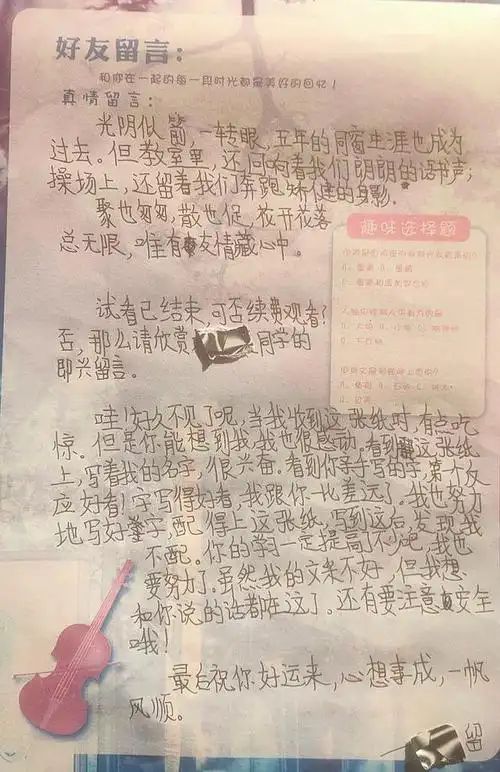 好友留言：
和你在一起的每一段时光都是美好的回忆！
真情留言：
光阴似箭，一转眼，五年的同窗生涯也成为
过去。但教室里，还回响着我们朗朗的读书声；
操场上，还留着我们奔跑矫健的身影。
聚也匆匆，散也促，花开花落
总无限，唯有友情藏心中。
趣味选择题
试看已结束，可否续费观看？
否，那么请欣赏 同学的
即兴留言。
哇！好久不见了呢，当我收到这张纸时，有点吃
惊。但是你能想到我，我也很感动，看到这张纸
上，写着我的名字，很兴奋。看到你亲手写的字，第个反
应好看！字写得好看，我跟你一比差远了，我也努力
地写好字，配得上这张纸，写到这后，发现我
不配。你的学习一定提高不少吧，我也
要努力了。虽然我的文采不好，但我想
和你说的话都在这了。还有要注意安全
哦！
最后祝你好运来，心想事成，一帆
风顺。
留